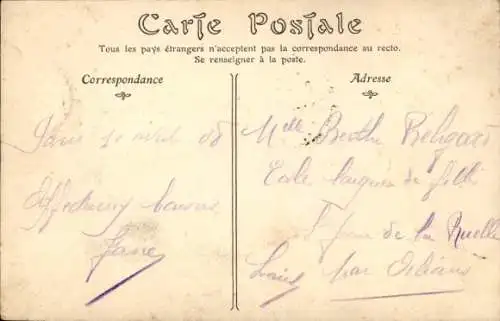 Carte Postale
Tous les pays étrangers n'acceptent pas la correspondance au recto.
Se renseigner à la poste.
Correspondance
Adresse
Paris 10 avril 08
Affectueux baisers
Jane
Melle Berthe
Ecole laïque de filles
de la Ruelle
par Orléans